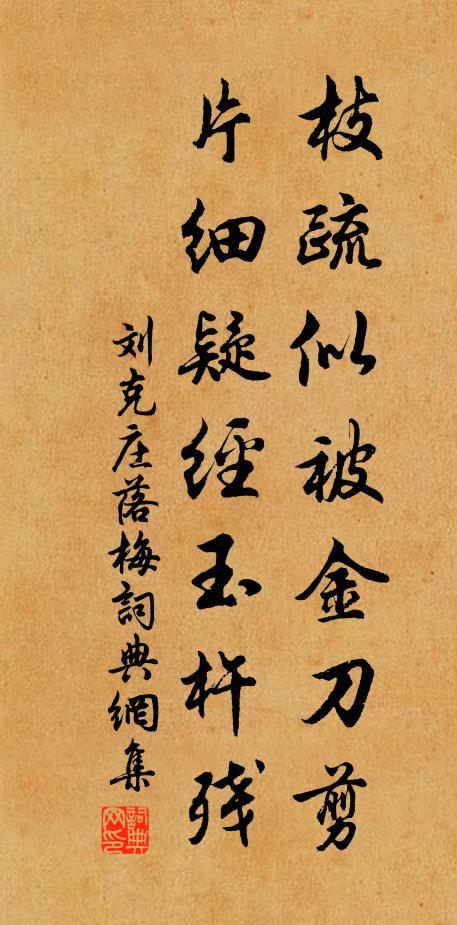 枝疏似被金刀剪
片细疑經玉杵残
刘克庄落梅詞典網集
詞典网印